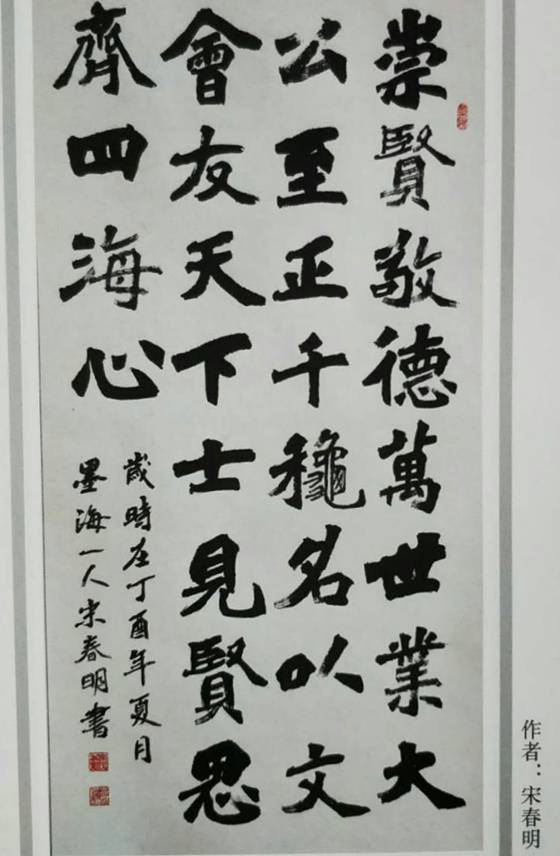 崇賢敬德萬世業大
公至正千龝名以文
會友天下士見賢思
齊四海心
歲時在丁酉年夏月
墨海一人宋春明書
作者：宋春明